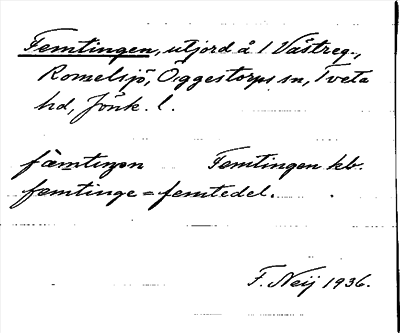 Femtingen, utjord å 1 Västreg.,
Romelsjö, Öggestorps sn, Tveta
hd, Jönk. l.
fämtiŋən Femtingen kb.
femtinge = femtedel.
F. Neij 1936.